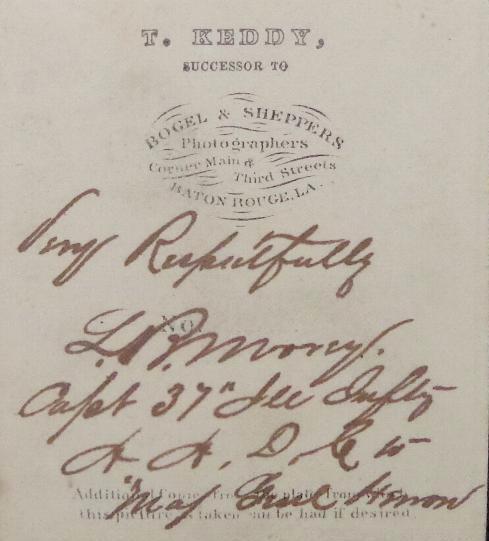 T. KEDDY,
SUCCESSOR TO
BOGEL & SHEPPERS
Photographers
Corner Main & Third Streets
BATON ROUGE, LA.
Very Respectfully
No.
L. B. Morey.
Capt 37" Ill Infty
A. A. D. C to
Maj Genl Herron
Additional Copies from the plate from which
this picture is taken can be had if desired.